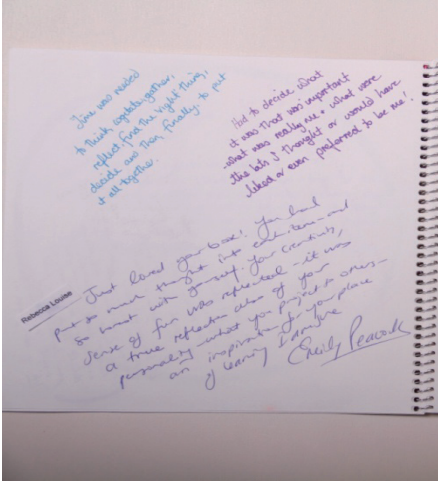 Time was needed
to think, update together,
reflect, find the right thing,
decide and then, finally, to put
it all together.
Had to decide what
it was that was important
what was really me & what were
the bits I thought or would have
liked or even preferred to be me!
Rebecca Louise
Just loved your box! You had
put so much thought into each item - and
so honest with yourself. Your creativity,
sense of fun was reflected - it was
a true reflection also of your
personality - what you project to others -
an inspiration for your place
of learning I imagine
Peacock